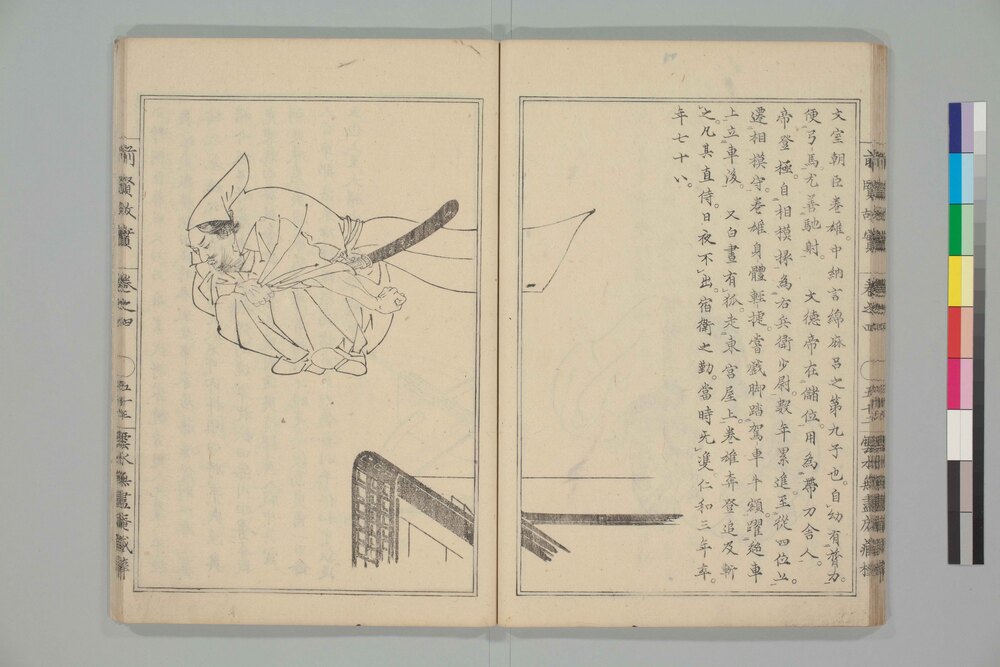 文室朝臣巻雄中納言綿麻呂之第九子也自幼有膂力
便弓馬尤善馳射　文徳帝在儲位用為帯刀舎人
帝登極自相模掾為右兵衛少尉数年累進至従四位上
遷相模守巻雄身體軽捷嘗戯脚踏駕車牛額躍超車
上立車後　又白晝有狐走東宮屋上巻雄奔登追及斬
之凡其直侍日夜不出宿衛之勤當時无雙仁和三年卒
年七十八
前賢故實　巻之四
前賢故實　巻之四